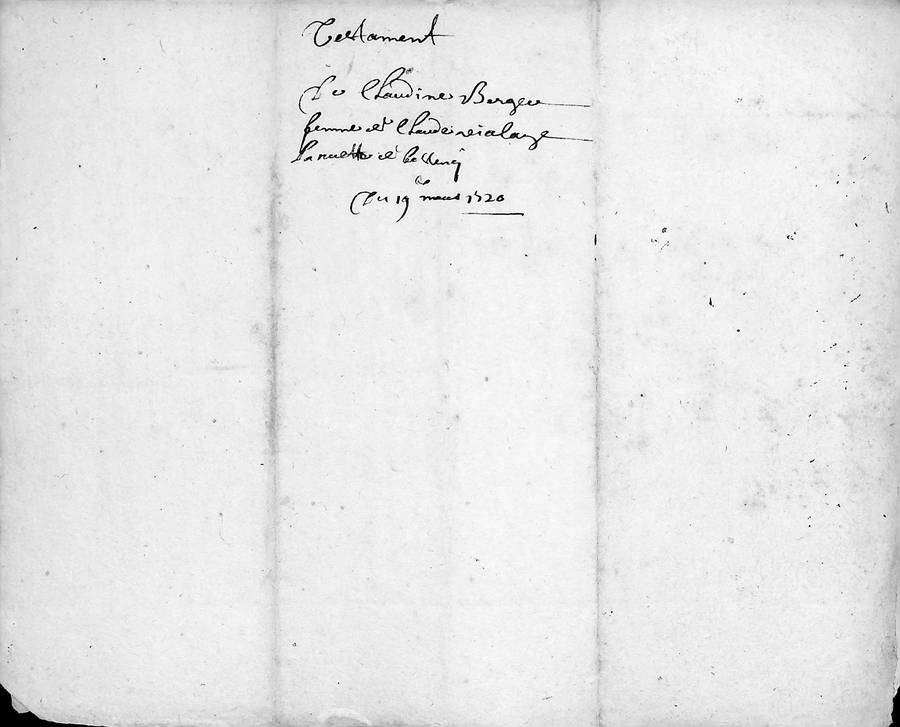 Testament
De Claudine Berger
femme de Claude vialaye
de
Du 19 mars 1720